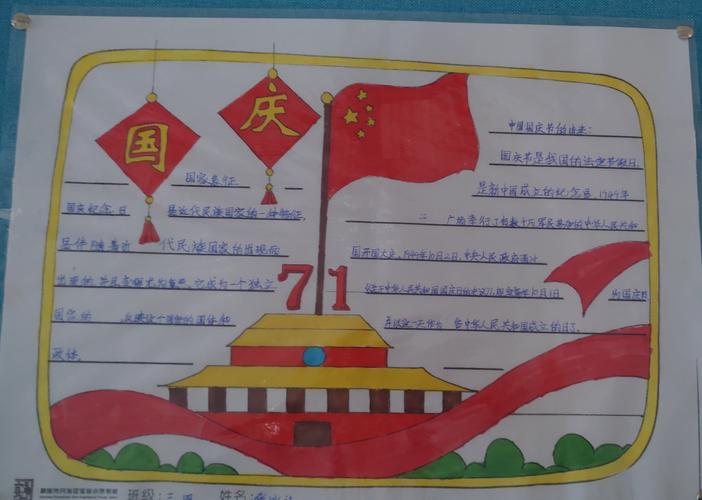 国庆
国家象征
国庆纪念日 是近代民族国家的一种特征，
是伴随着近 代民族国家的出现而
出现的 并且变得尤为重要。它成为一个独立
国家的 反映这个国家的国体和
政体。
71
中国国庆节的由来：
国庆节是我国的法定节假日，
是新中国成立的纪念日，1949年
广场举行了有数十万军民参加的中华人民共和
国开国大典，1949年10月2日，中央人民政府通过
中华人民共和国国庆日的决议 10月1日
为国庆日
并以这一天作为 中华人民共和国成立的日子。
班级：三 姓名：